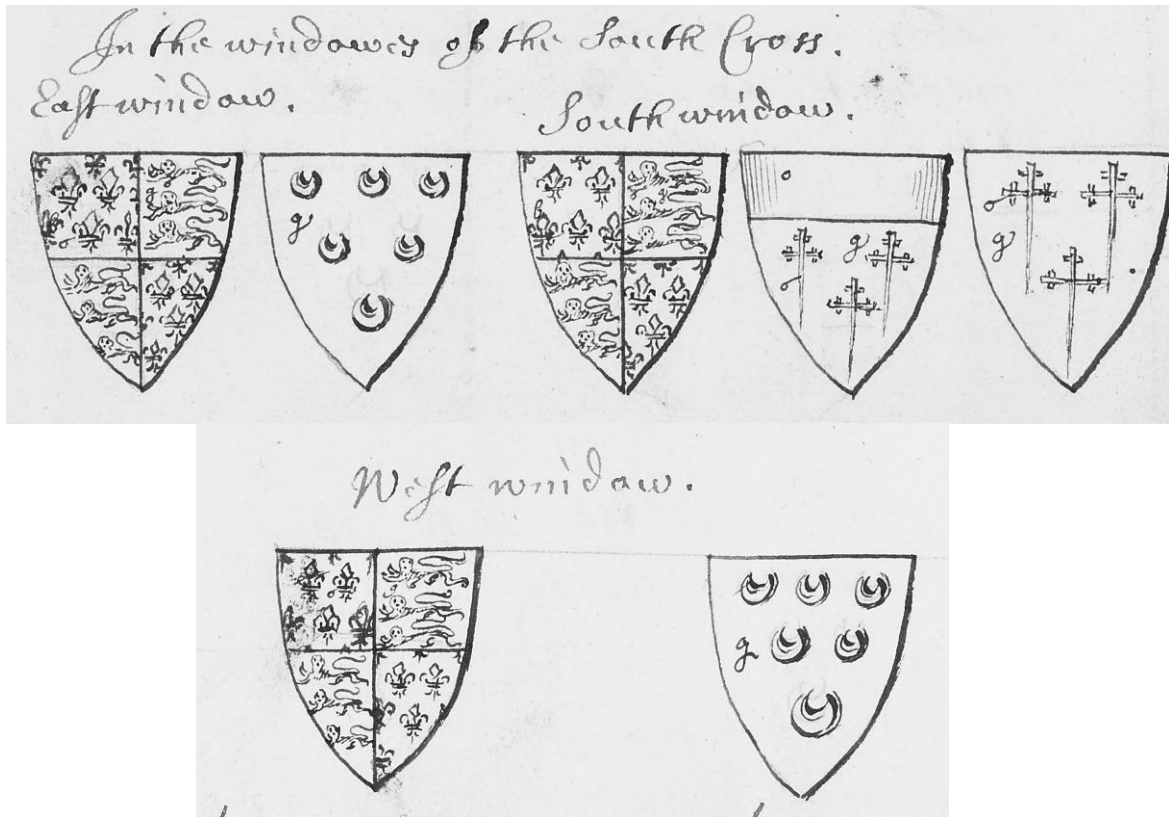 In the windowes of the South Cross.
East window.
South window.
g
o
g
o
o
g
West window.
g